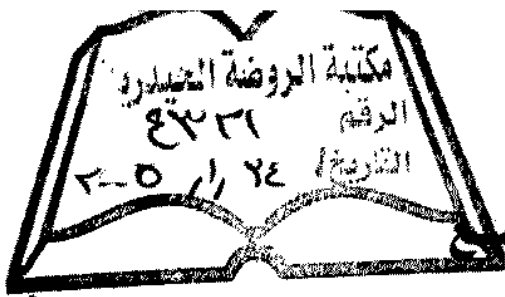 مكتبة الروضة الحيدرية
الرقم ٣٢١
التاريخ / ٢٤ / ١ / ٢٠٠٥